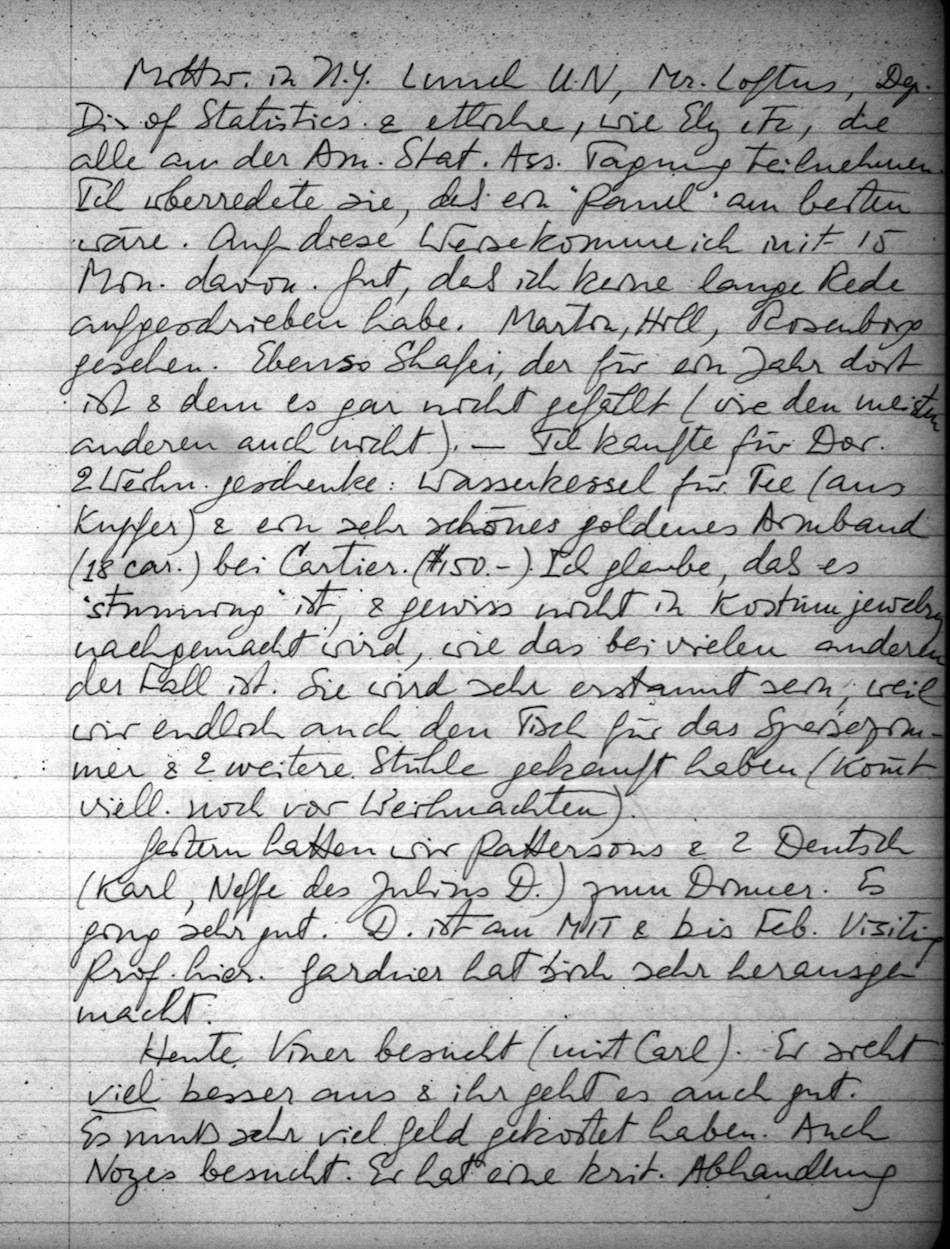 Mittw. in N.Y. Lunch U.N, Mr. Loftus, Dep.
Div of Statistics. & etliche, wie Ely etc, die
alle an der Am. Stat. Ass. Tagung teilnehmen.
Ich überredete sie, daß ein "Panel" am besten
wäre. Auf diese Weise komme ich mit 15
Min. davon. Gut, daß ich keine lange Rede
aufgeschrieben habe. Martin, Hill, Rosenborg
gesehen. Ebenso Shafei, der für ein Jahr dort
ist & dem es gar nicht gefällt (wie den meisten
anderen auch nicht). — Ich kaufte für Dor.
2 Weihn. geschenke: Wasserkessel für Tee (aus
Kupfer) & ein sehr schönes goldenes Armband
(18 car.) bei Cartier. ($150.-) Ich glaube, daß es
"stunning" ist, & gewiss nicht in Kostüm jewelry
nachgemacht wird, wie das bei vielen anderen
der Fall ist. Sie wird sehr erstaunt sein, weil
wir endlich auch den Tisch für das Speisezim-
mer & 2 weitere Stühle gekauft haben (Kom̄t
viell. noch vor Weihnachten).
Gestern hatten wir Pattersons & 2 Deutsch
(Karl, Neffe des Julius D.) zum Dinner. Es
ging sehr gut. D. ist am MIT & bis Feb. Visiting
Prof. hier. Gardner hat sich sehr herausge
macht.
Heute Viner besucht (mit Carl). Er sieht
viel besser aus & ihr geht es auch gut.
Es muß sehr viel Geld gekostet haben. Auch
Nozes besucht. Er hat eine krit. Abhandlung